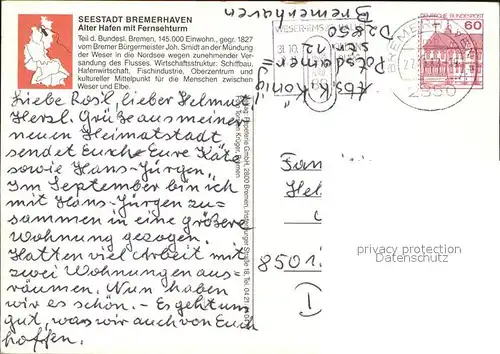 SEESTADT BREMERHAVEN
Alter Hafen mit Fernsehturm
Teil d. Bundesl. Bremen, 145.000 Einwohn., gegr. 1827
vom Bremer Bürgermeister Joh. Smidt an der Mündung
der Weser in die Nordsee wegen zunehmender Ver-
sandung des Flusses. Wirtschaftsstruktur: Schiffbau,
Hafenwirtschaft, Fischindustrie, Oberzentrum und
kultureller Mittelpunkt für die Menschen zwischen
Weser und Elbe.
Liebe Rosl, lieber Helmut,
Herzl. Grüße aus meiner
neuen Heimatstadt
sendet Euch Eure Käte
sowie Hans-Jürgen.
Im September bin ich
mit Hans-Jürgen zu-
sammen in eine größere
Wohnung gezogen.
Hatten viel Arbeit mit
zwei Wohnungen aus-
räumen. Nun haben
wir es schön. - Es geht uns
gut, was wir auch von Euch
hoffen.
Abs. K. König
Potsdamer
Str. 12
D 2850
Bremerhaven
WESER-EMS
31.10.
DEUTSCHE BUNDESPOST
60
BREMERHAVEN
2850
Fam
Hel
8501
privacy protection